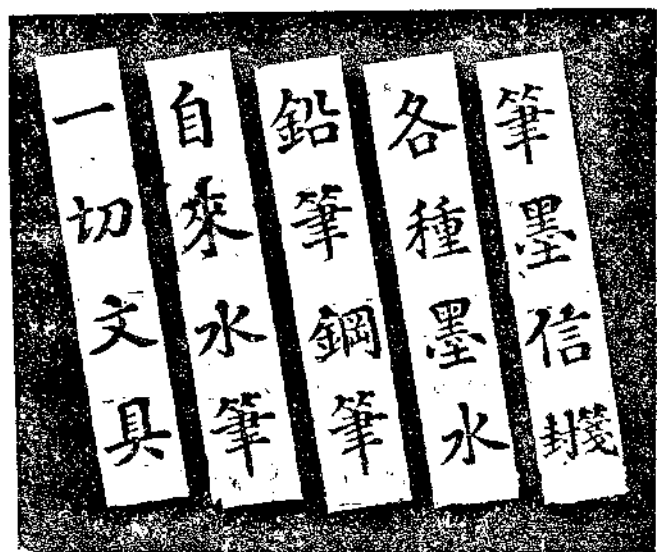 筆墨信封箋
各種墨水
鉛筆鋼筆
自來水筆
一切文具